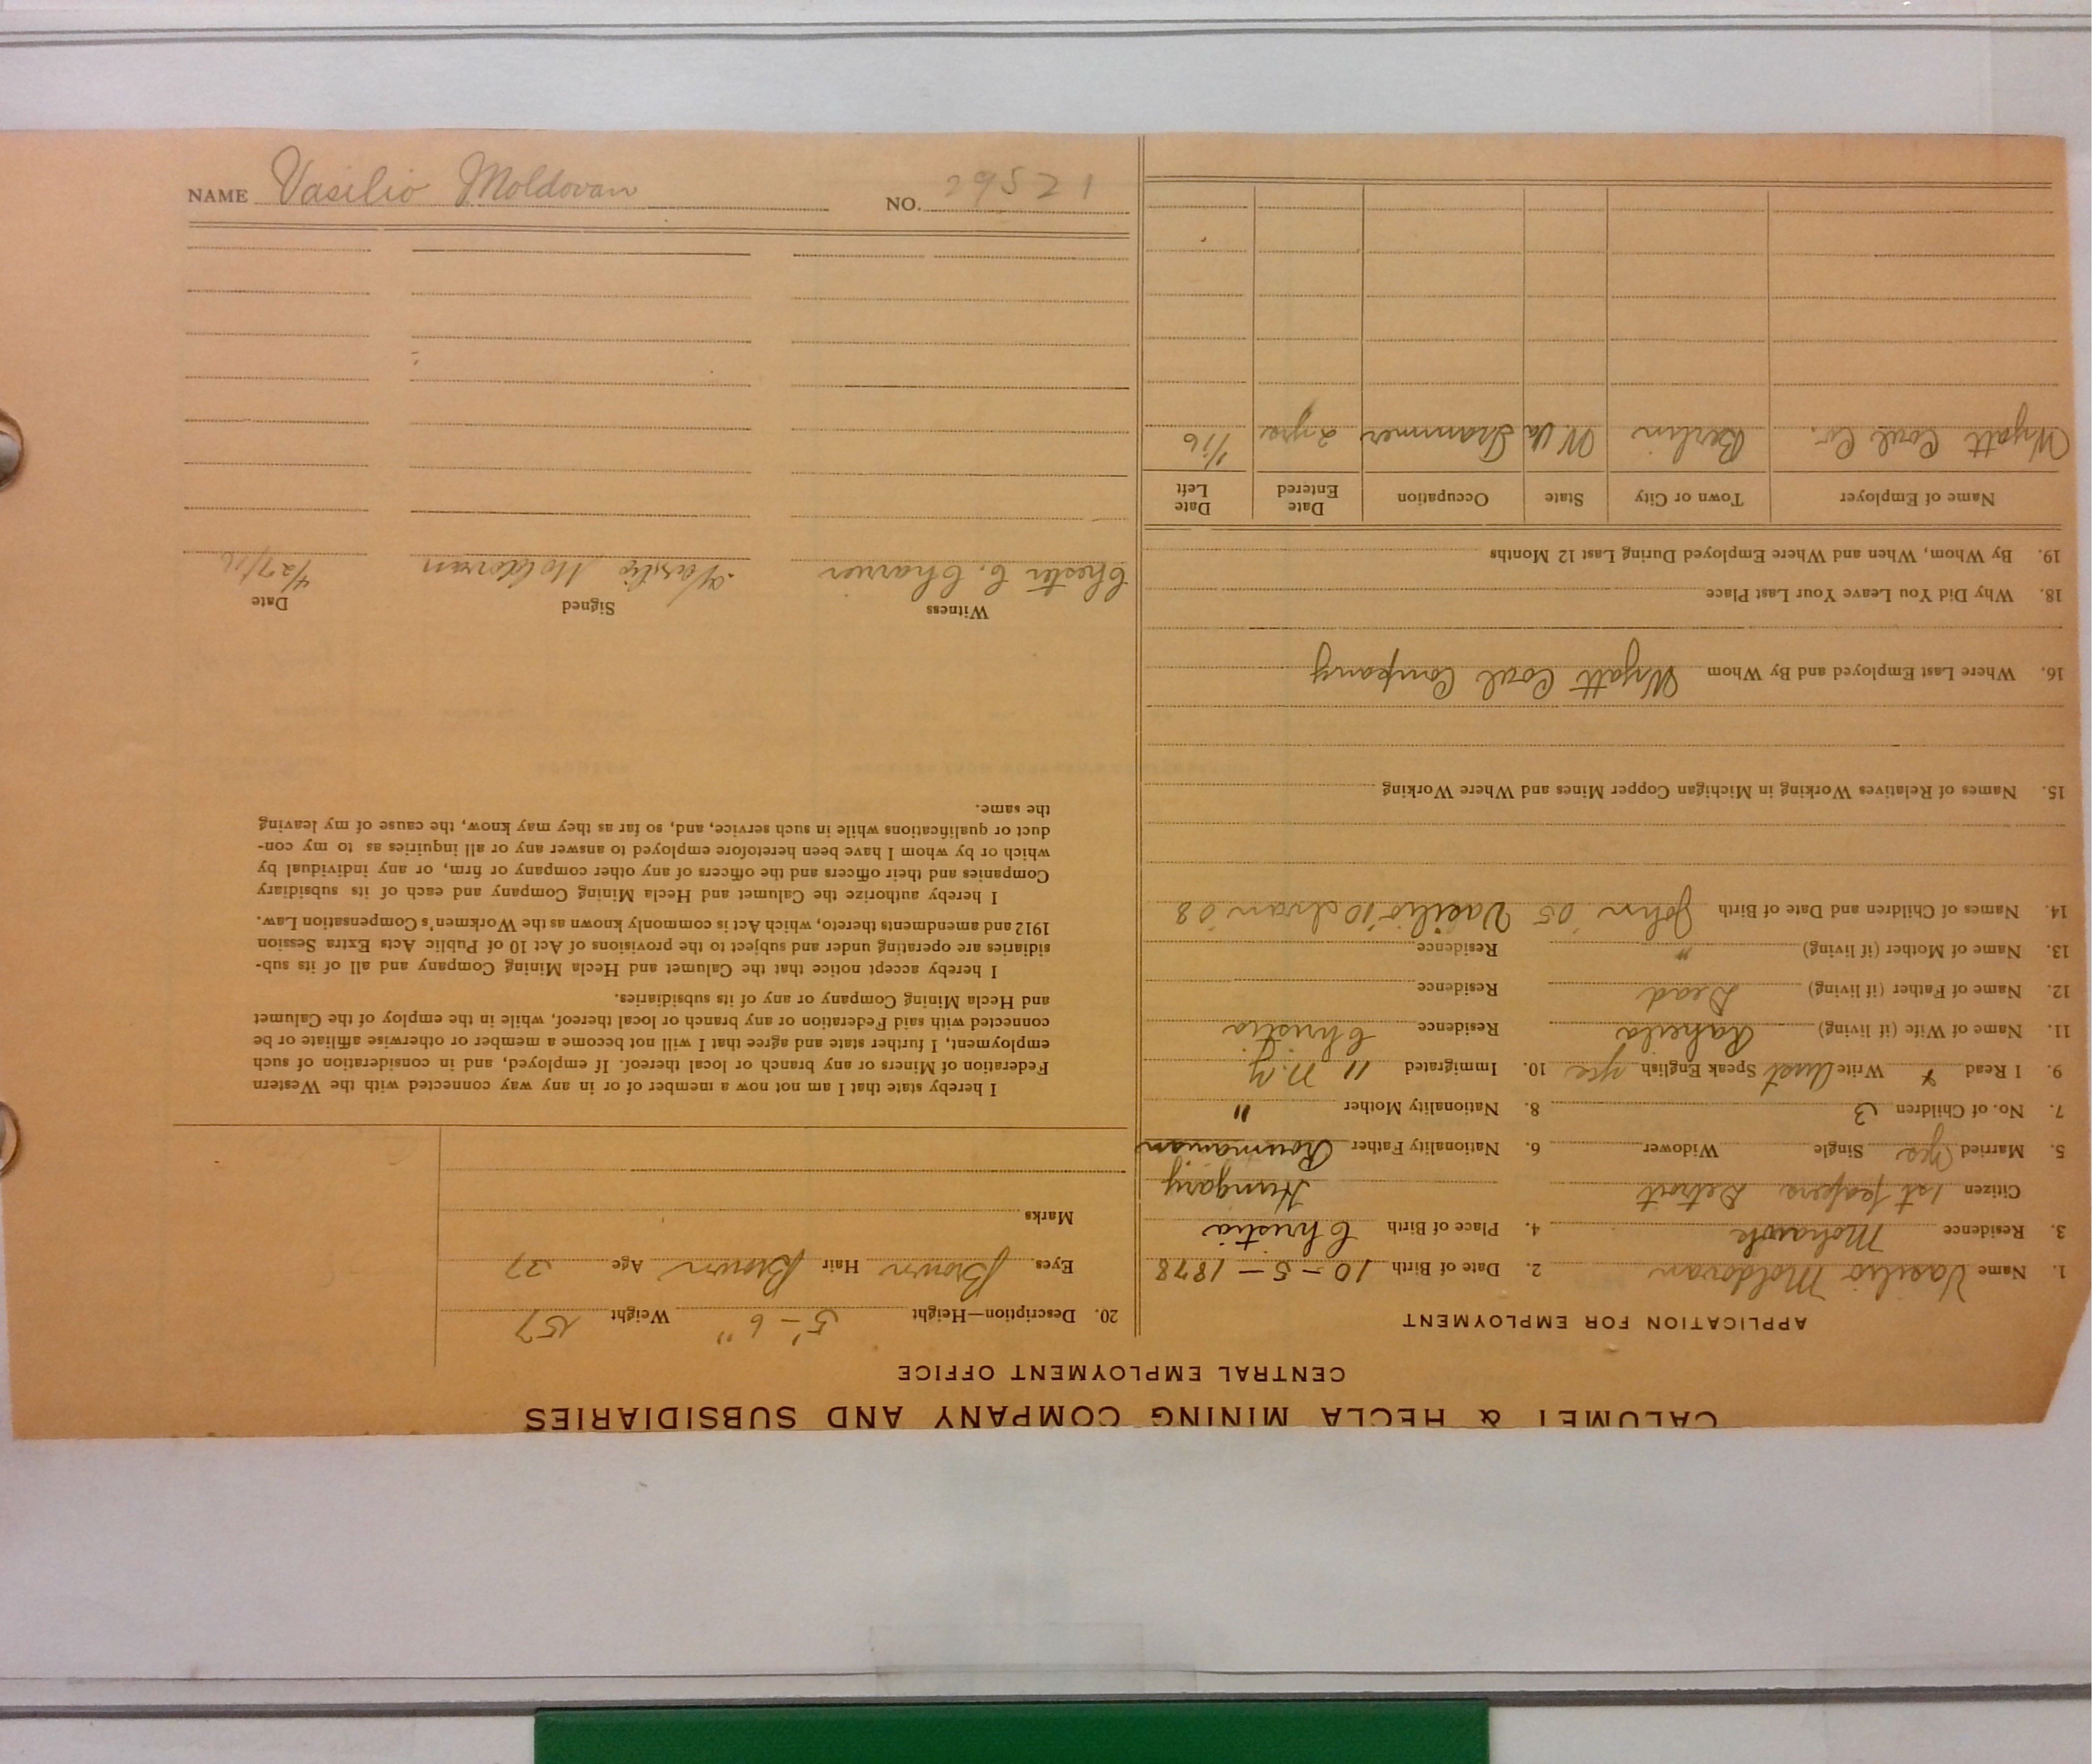 CALUMET & HECLA MINING COMPANY AND SUBSIDIARIES
CENTRAL EMPLOYMENT OFFICE
APPLICATION FOR EMPLOYMENT
1. Name Vasilio Moldovan 2. Date of Birth 10-5-1878
3. Residence Mohawk 4. Place of Birth Christia
Citizen 1st papers Detroit Hungary
5. Married Yes Single Widower 6. Nationality Father Roumanian
7. No. of Children 3 8. Nationality Mother "
9. I Read Write Speak English yes 10. Immigrated 11 N.Y.
11. Name of Wife (if living) Raheila Residence Christia
12. Name of Father (if living) Dead Residence
13. Name of Mother (if living) " Residence
14. Names of Children and Date of Birth John '05 Vasilio '10 Ivan '08
15. Names of Relatives Working in Michigan Copper Mines and Where Working
16. Where Last Employed and By Whom Wyatt Coal Company
18. Why Did You Leave Your Last Place
19. By Whom, When and Where Employed During Last 12 Months
Name of Employer Town or City State Occupation Date Entered Date Left
Wyatt Coal Co. Berlin W. Va Trammer 2 yrs 1/16
20. Description—Height 5'-6" Weight 157
Eyes Brown Hair Brown Age 37
Marks
I hereby state that I am not now a member of or in any way connected with the Western
Federation of Miners or any branch or local thereof. If employed, and in consideration of such
employment, I further state and agree that I will not become a member or otherwise affiliate or be
connected with said Federation or any branch or local thereof, while in the employ of the Calumet
and Hecla Mining Company or any of its subsidiaries.
I hereby accept notice that the Calumet and Hecla Mining Company and all of its sub-
sidiaries are operating under and subject to the provisions of Act 10 of Public Acts Extra Session
1912 and amendments thereto, which Act is commonly known as the Workmen's Compensation Law.
I hereby authorize the Calumet and Hecla Mining Company and each of its subsidiary
Companies and their officers and the officers of any other company or firm, or any individual by
which or by whom I have been heretofore employed to answer any or all inquiries as to my con-
duct or qualifications while in such service, and, so far as they may know, the cause of my leaving
the same.
Witness Signed Date
Chester C. Charrier Vasilio Moldovan 4/27/16
NAME Vasilio Moldovan NO. 29521